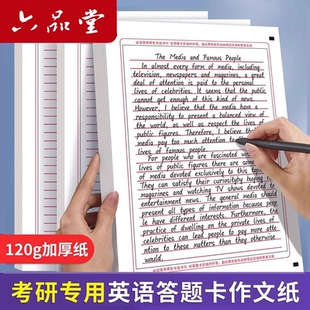 六品堂
The Media and Famous People
In almost every form of media, including
television, newspapers and magazines, a great
deal of attention is paid to the personal
lives of celebrities. It seems that the public
cannot get enough of this kind of news.
However, I believe that the media have a
responsibility to present a balanced view of
the world, as well as respect the lives of
public figures. Therefore, I believe that the
media pay too much attention to
lives of famous people.
For people who are fascinated with
lives of public figures, there are some
of media devoted exclusively to this topic.
They can satisfy their curiosity by buying
magazines and watching TV shows devoted to
entertainment news. The general media should
present all types of information because peop
le have different interests. Furthermore, the
practice of dwelling on the private lives of
celebrities can lead people to pay more atte
ntion to these matters than they otherwise
would.
120g加厚纸
考研专用英语答题卡作文纸